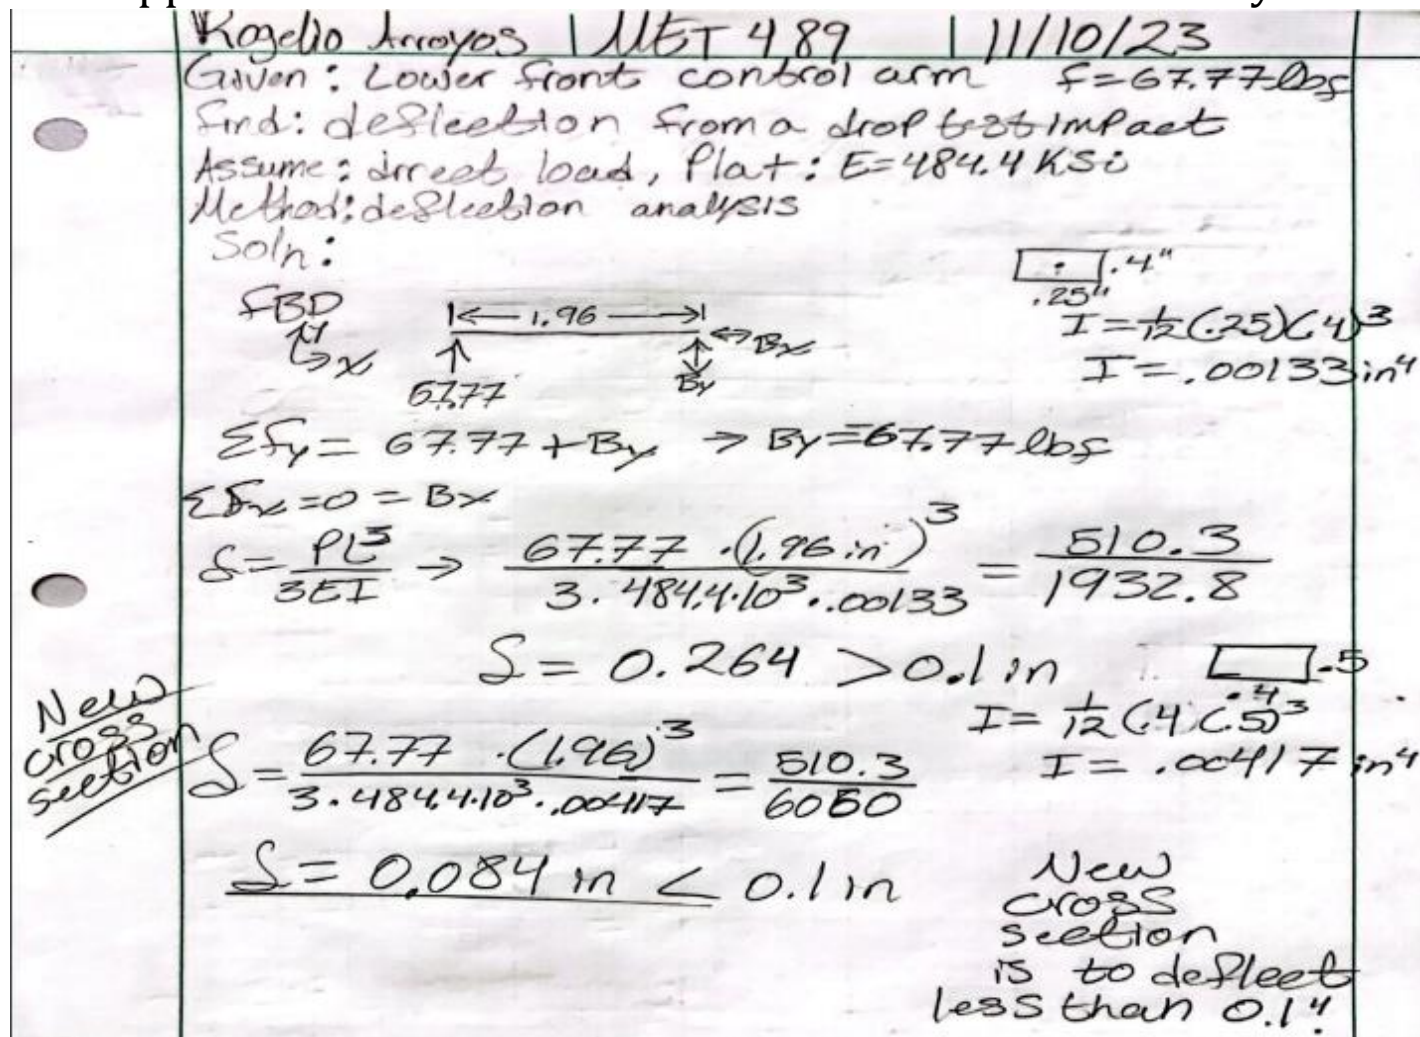 Rogelio Arroyos | MET 489 | 11/10/23
Given: Lower front control arm f=67.77 lbf
find: deflection from a drop test impact
Assume: direct load, Plat: E=484.4 KSi
Method: deflection analysis
Soln:
.4"
.25"
FBD
|← 1.96 →|
Bx
y
x
67.77
By
I = 1/12 (.25)(.4)^3
I = .00133 in^4
Σfy = 67.77 + By → By = 67.77 lbf
Σfx = 0 = Bx
δ = PL^3/3EI → 67.77 · (1.96 in)^3 / 3 · 484.4·10^3 · .00133 = 510.3/1932.8
δ = 0.264 > 0.1 in
.5
.4
New
cross
section
I = 1/12 (.4)(.5)^3
I = .00417 in^4
δ = 67.77 · (1.96)^3 / 3 · 484.4·10^3 · .00417 = 510.3/6050
δ = 0.084 in < 0.1 in
New
cross
section
is to deflect
less than 0.1"